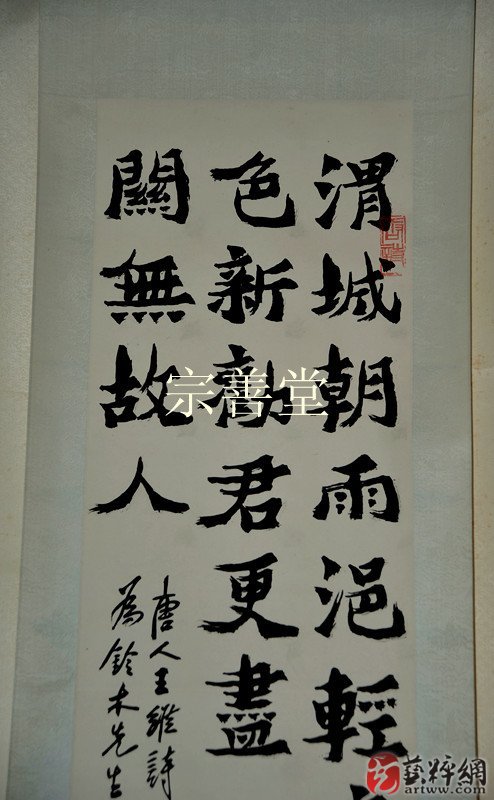 渭城朝雨浥輕
色新勸君更盡
關無故人
唐人王維詩
為鈴木先生
宗善堂
藝粹網
artww.com